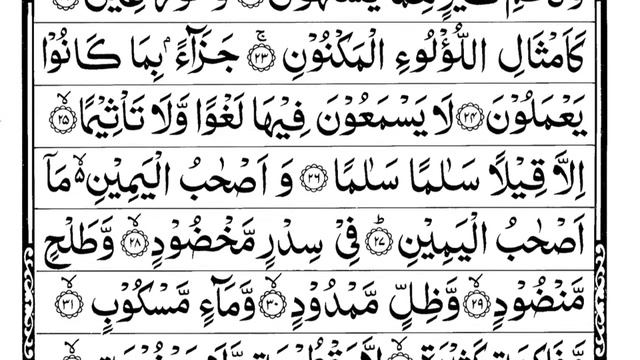 كَاَمْثَالِ اللُّؤْلُوءِ الْمَكْنُوْنِ ۚ ﴿۲۳﴾ جَزَآءًۢ بِمَا كَانُوْا
يَعْمَلُوْنَ ﴿۲۴﴾ لَا يَسْمَعُوْنَ فِيْهَا لَغْوًا وَّلَا تَاْثِيْمًا ۙ ﴿۲۵﴾
اِلَّا قِيْلًا سَلٰمًا سَلٰمًا ﴿۲۶﴾ وَ اَصْحٰبُ الْيَمِيْنِ ۙ مَاۤ
اَصْحٰبُ الْيَمِيْنِ ؕ ﴿۲۷﴾ فِيْ سِدْرٍ مَّخْضُوْدٍ ۙ ﴿۲۸﴾ وَّطَلْحٍ
مَّنْضُوْدٍ ۙ ﴿۲۹﴾ وَّظِلٍّ مَّمْدُوْدٍ ۙ ﴿۳۰﴾ وَّمَآءٍ مَّسْكُوْبٍ ۙ ﴿۳۱﴾